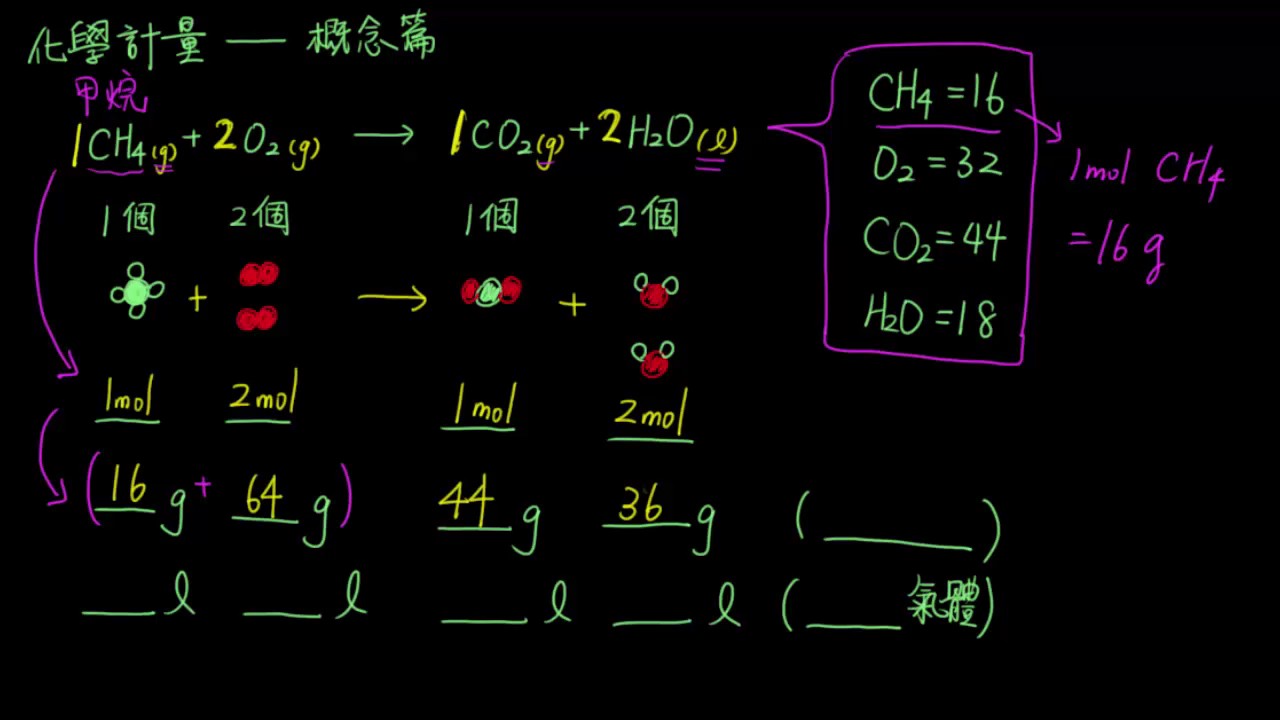 化學計量 — 概念篇
甲烷
1CH₄(g) + 2O₂(g) → 1CO₂(g) + 2H₂O(l)
1個 2個 1個 2個
+ → +
1mol 2mol 1mol 2mol
(16 g + 64 g) 44 g 36 g (____)
__ l __ l __ l __ l (____氣體)
CH₄=16
O₂=32
CO₂=44
H₂O=18
1mol CH₄
=16g